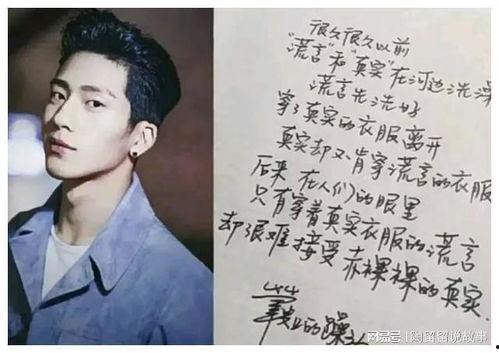 很久很久以前
"谎言"和"真实"在河边洗澡
谎言先洗好
穿了真实的衣服离开
真实却不肯穿谎言的衣服
后来 在人们的眼里
只有穿着真实衣服的谎言
却很难接受赤裸裸的真实
搜狐号@陶留留说故事